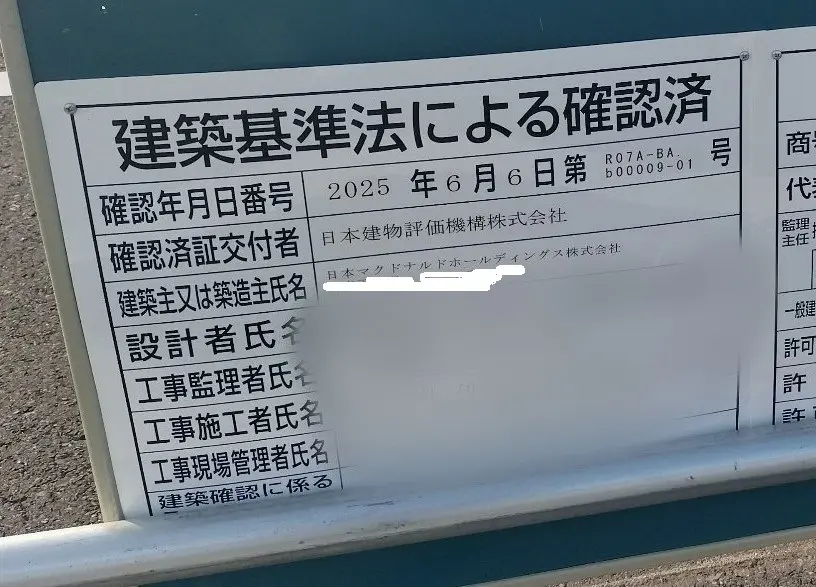 建築基準法による確認済
確認年月日番号 2025 年 6 月 6 日 第 R07A-BA. b00009-01 号
確認済証交付者 日本建物評価機構株式会社
建築主又は築造主氏名 日本マクドナルドホールディングス株式会社
設計者氏名
工事監理者氏名
工事施工者氏名
工事現場管理者氏名
建築確認に係る
商号
代表
監理
主任
一般建
許可
許
許可